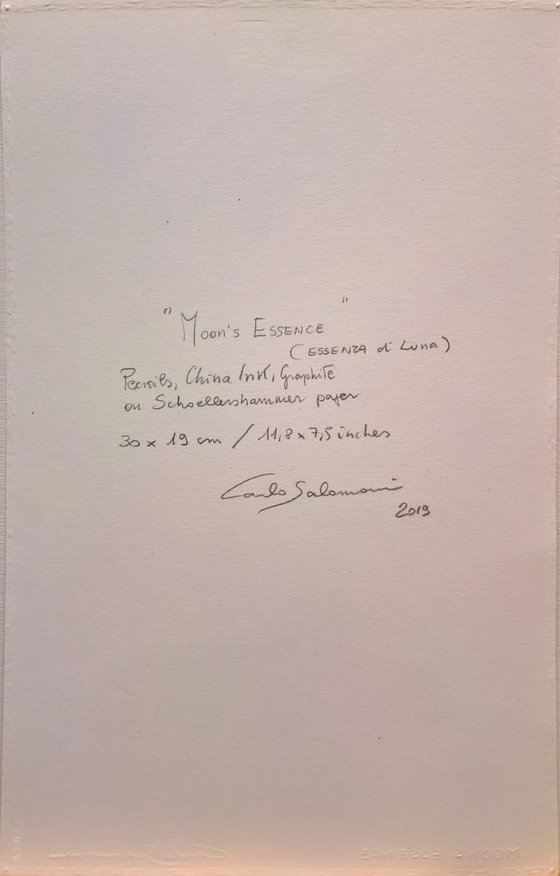 "Moon's Essence"
(Essenza di Luna)
Pencils, China Ink, Graphite
on Schoellershammer paper
30 x 19 cm / 11,8 x 7,5 inches
Carlo Salomoni
2019